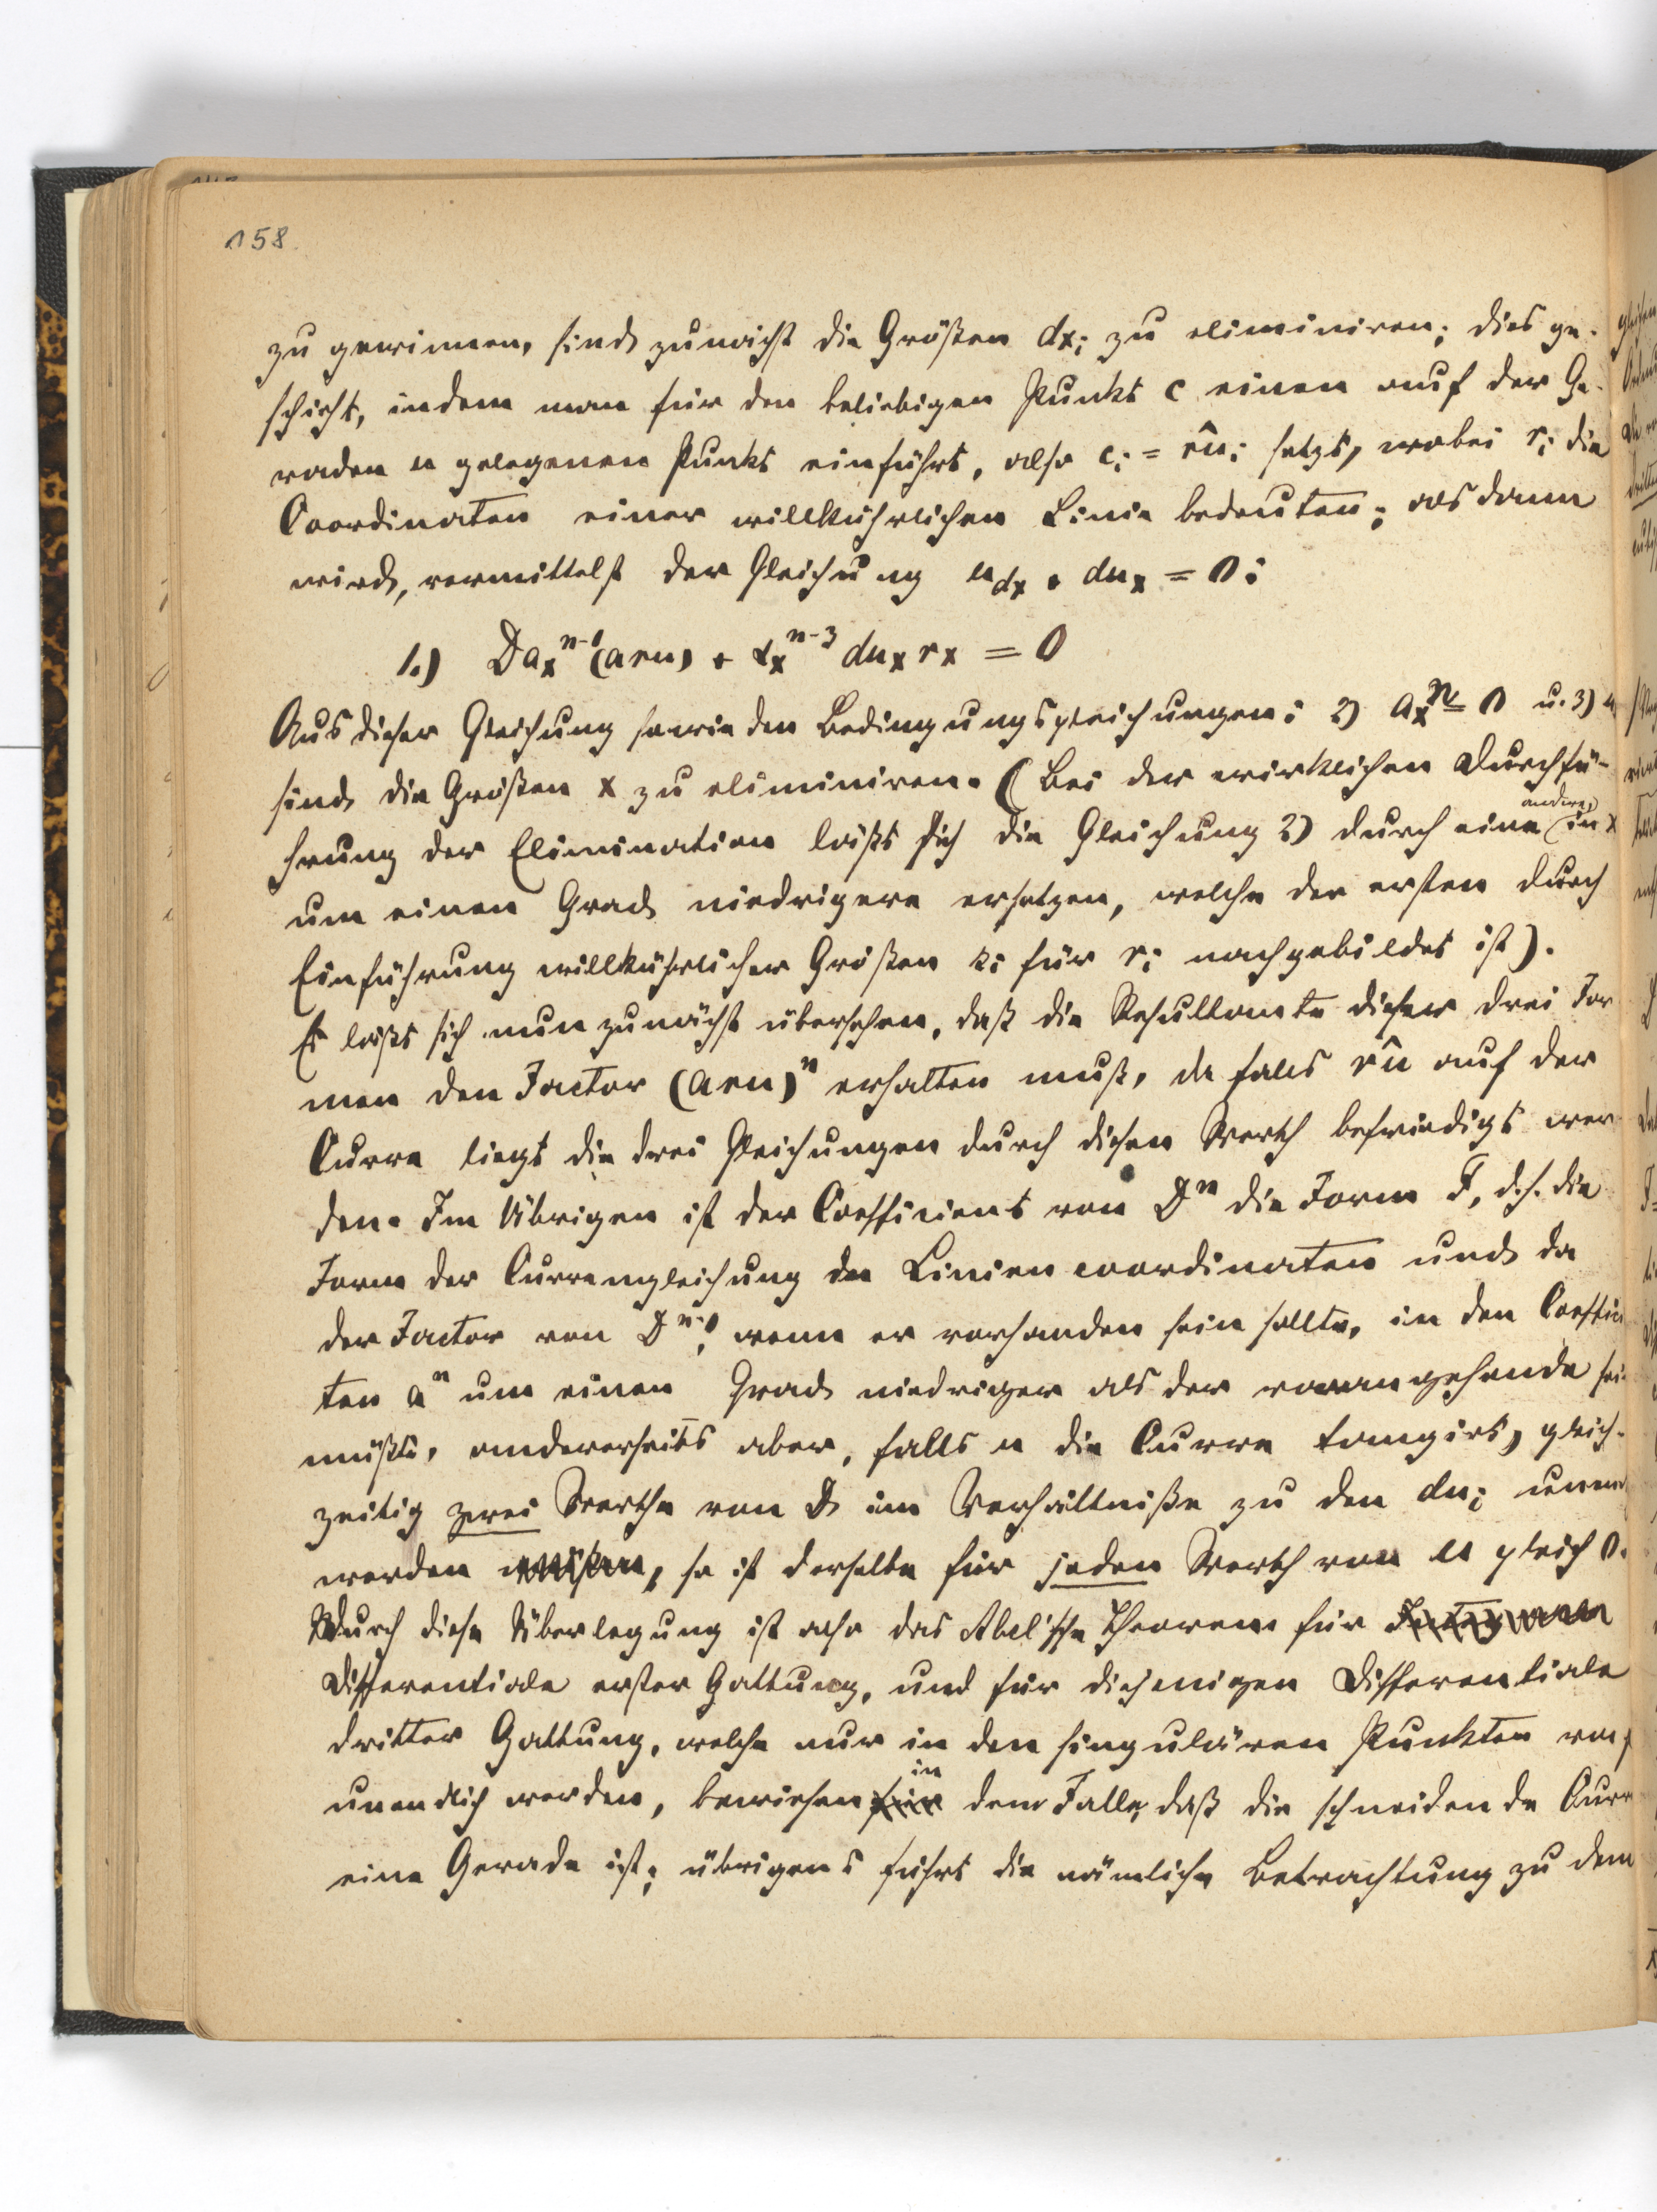 158.
zu gewinnen, sind zunächst die Größen dxᵢ zu eliminiren; dies ge-
schieht, indem man für den beliebigen Punkt c einen auf der Ge-
raden u gelegenen Punkt einführt, also cᵢ = r͡uᵢ setzt, wobei rᵢ die
Coordinaten einer willkührlichen Linie bedeuten; alsdann
wird, vermittelst der Gleichung u_dx + du_x = 0:
1.) D a_x^{n-1} (aru) + α_x^{n-3} du_x r_x = 0
Aus dieser Gleichung sowie den Bedingungsgleichungen: 2) a_x^n = 0 u. 3) u
sind die Größen x zu eliminiren. (Bei der wirklichen Durchfü-
hrung der Elimination läßt sich die Gleichung 2) durch eine andere, in x
um einen Grad niedrigere ersetzen, welche der ersten durch
Einführung willkührlicher Größen sᵢ für rᵢ nachgebildet ist).
Es läßt sich nun zunächst übersehen, daß die Resultante dieser drei For
men den Factor (aru)^n erhalten muß, da falls r͡u auf der
Curve liegt die drei Gleichungen durch diesen Werth befriedigt wer
den. Im Übrigen ist der Coefficient von D^n die Form F, d.h. die
Form der Curvengleichung in Liniencoordinaten und da
der Factor von D^{n-1}, wenn er vorhanden sein sollte, in den Coeffici
ten a^n um einen Grad niedriger als der vorangehende sei
müßte, andererseits aber, falls u die Curve tangirt, gleich-
zeitig zwei Werthe von D im Verhältniße zu den duᵢ unend
werden müssen, so ist derselbe für jeden Werth von u gleich 0.
Durch diese Überlegung ist also das Abel'sche Theorem für
Differentiale erster Gattung, und für diejenigen Differentiale
dritter Gattung, welche nur in den singulären Punkten von f
unendlich werden, bewiesen für in dem Falle, daß die schneidende Curv
eine Gerade ist; übrigens führt die nämliche Betrachtung zu dem